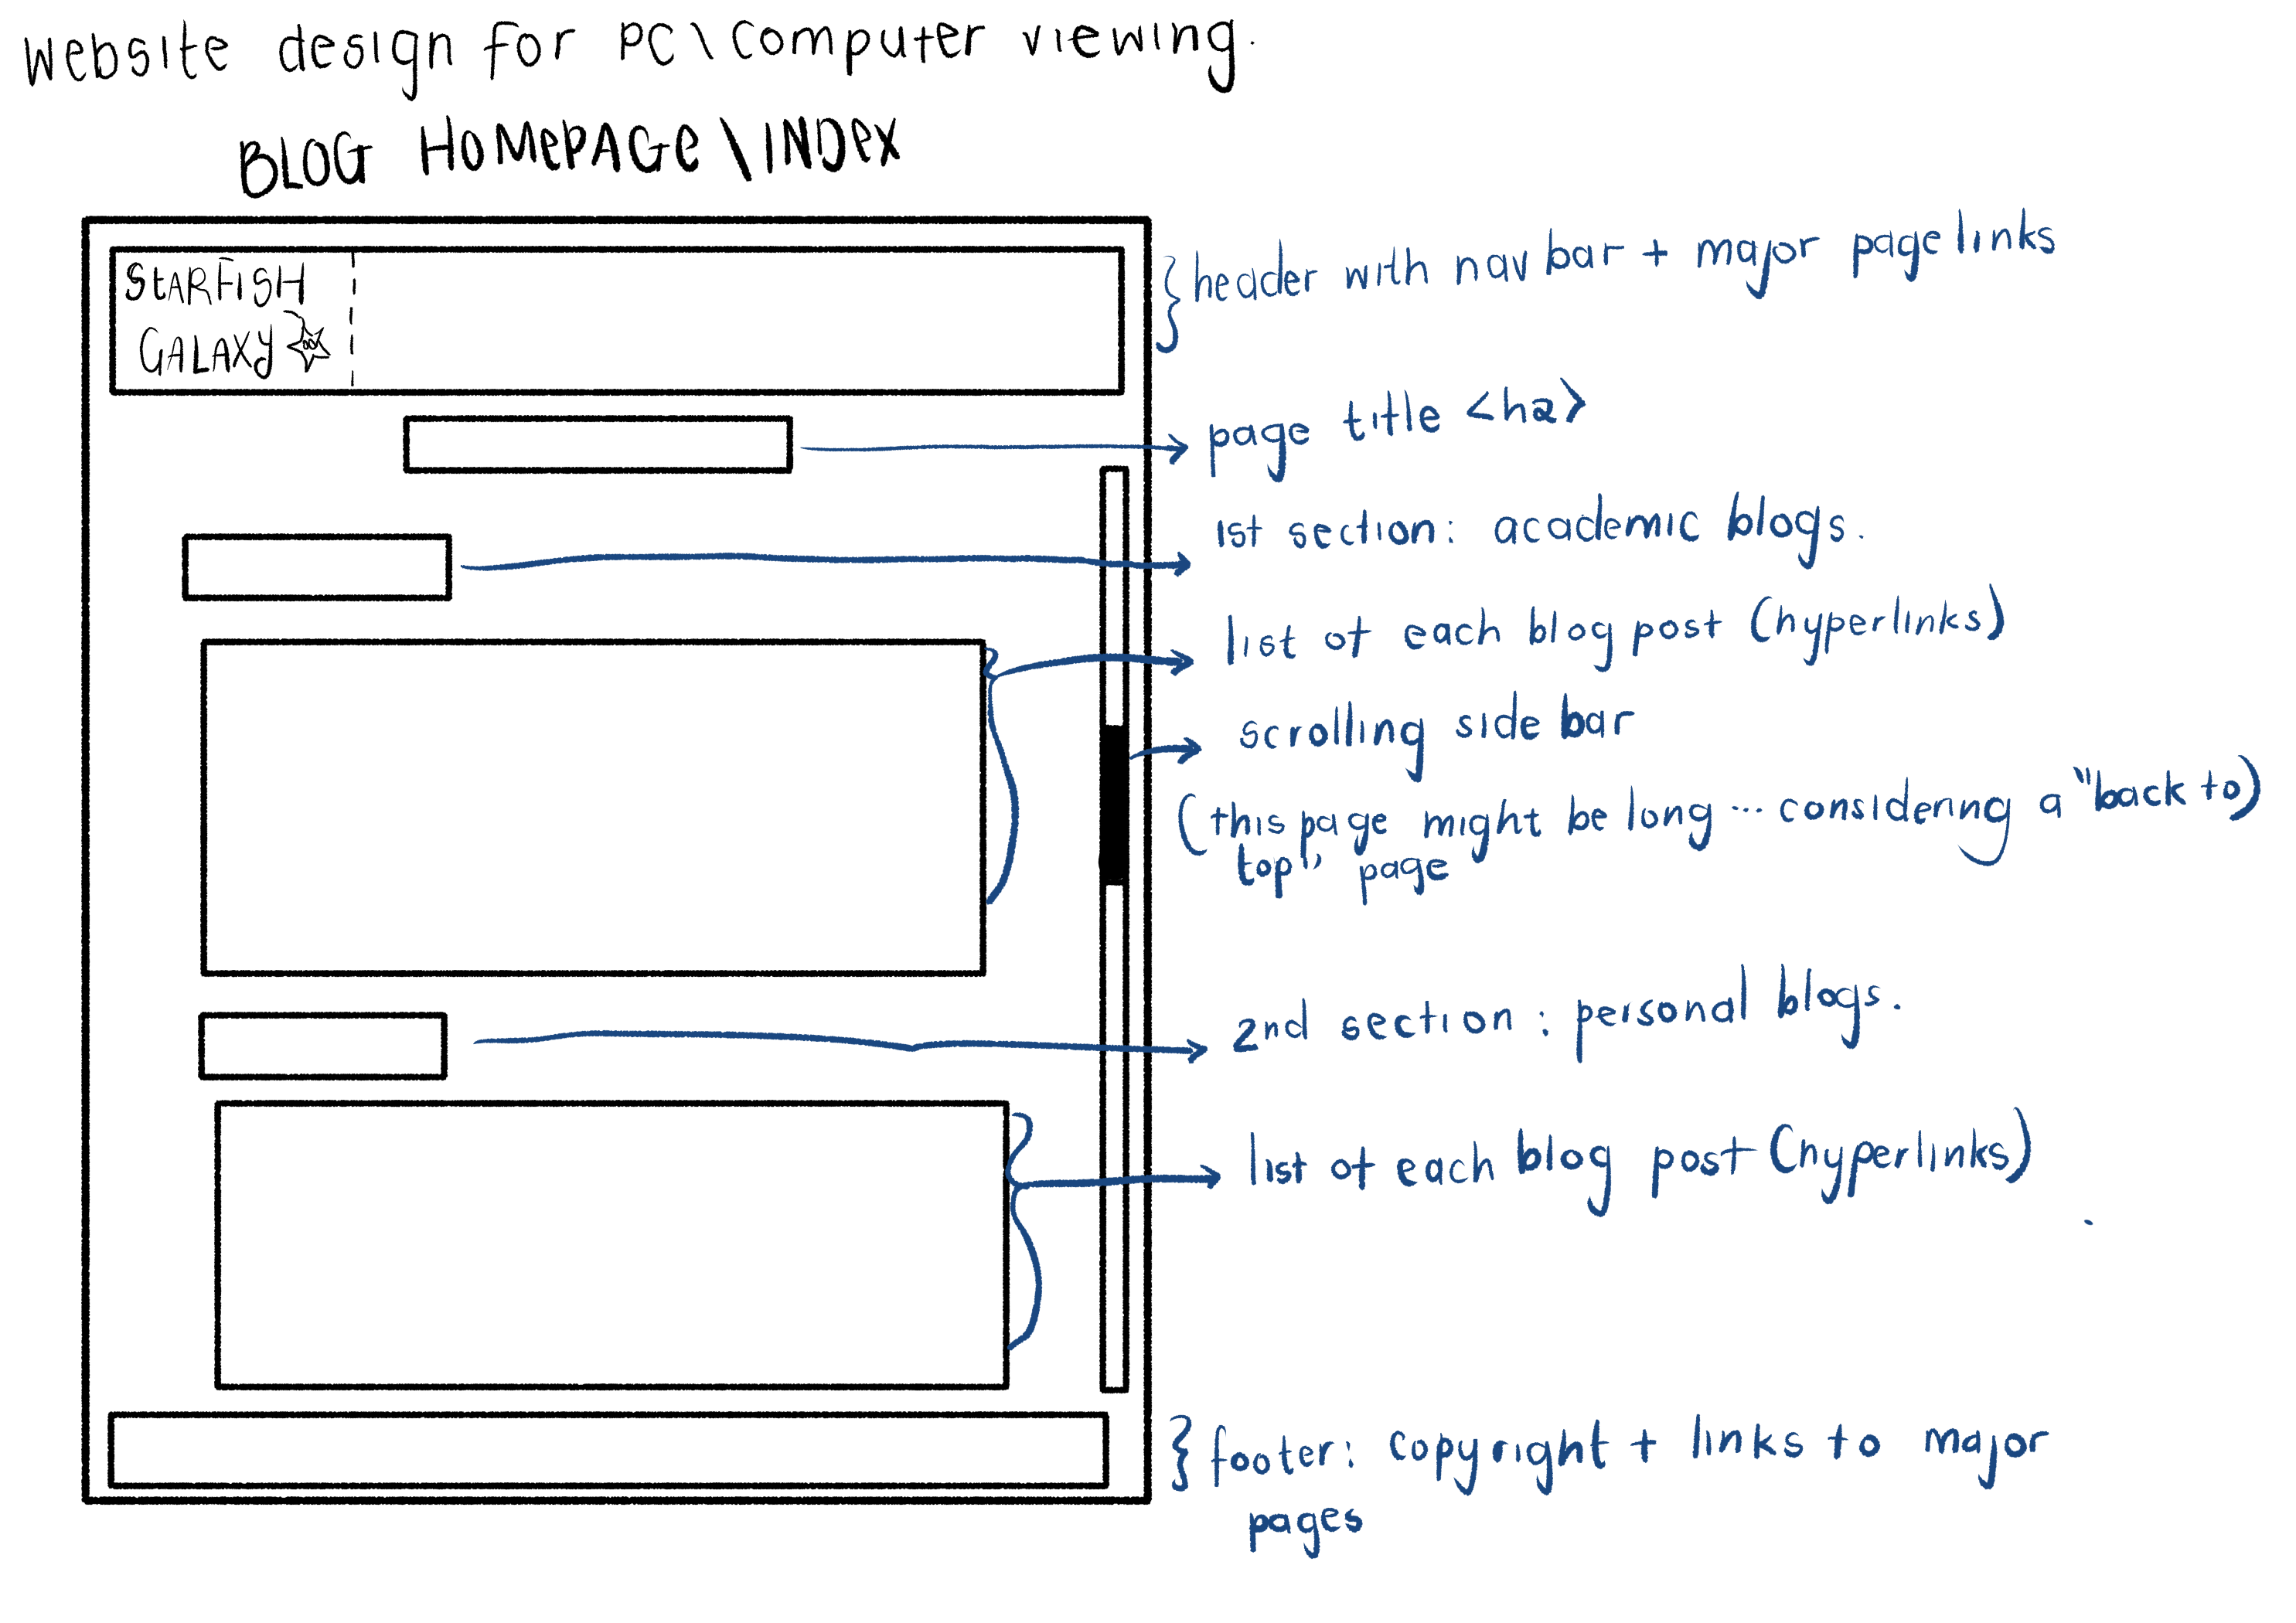 website design for PC\computer viewing.
BLOG HOMEPAGE\INDEX
STARFISH
GALAXY
header with nav bar + major page links
page title <h2>
1st section: academic blogs.
list of each blog post (hyperlinks)
scrolling side bar
(this page might be long ... considering a "back to)
top" page
2nd section: personal blogs.
list of each blog post (hyperlinks)
footer: copyright + links to major
pages